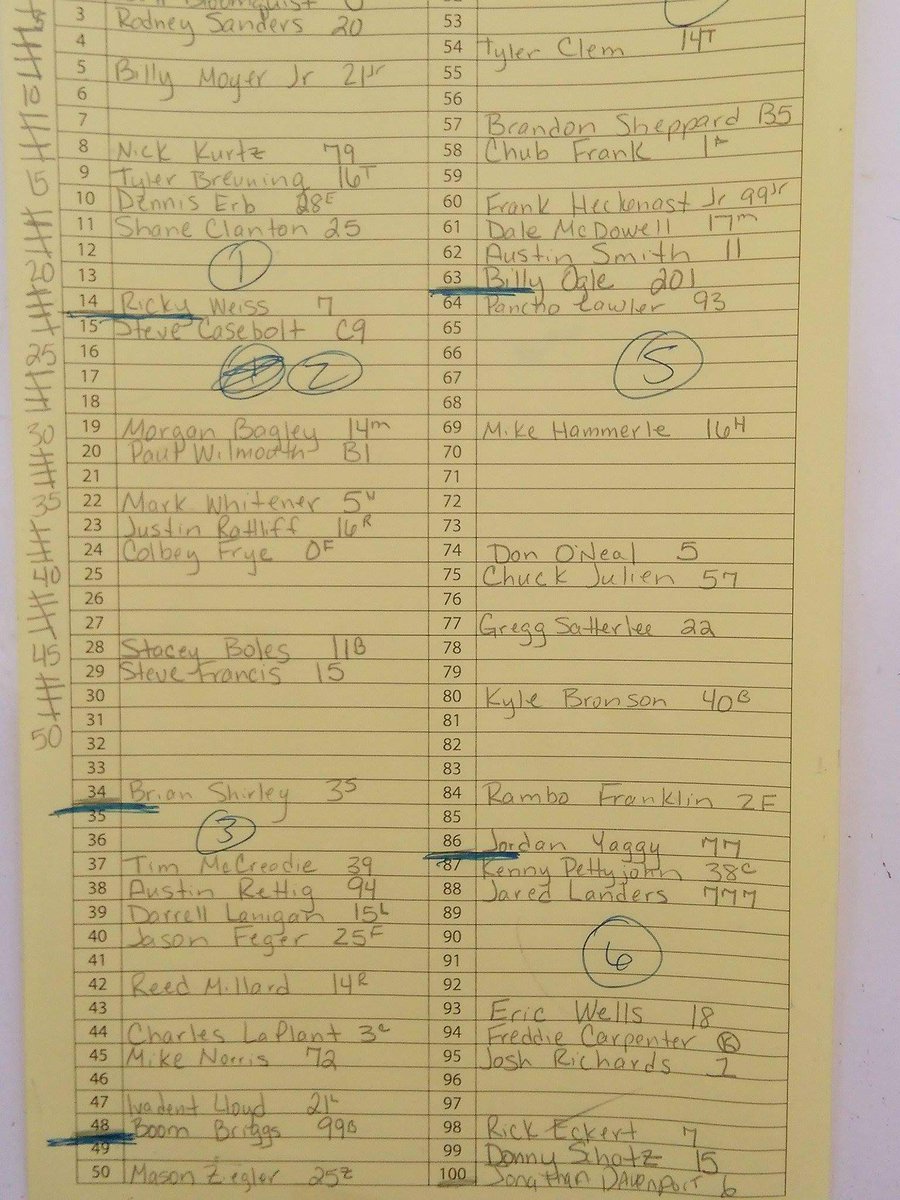 3 Rodney Sanders 20
4
5 Billy Moyer Jr 21Jr
6
7
8 Nick Kurtz 79
9 Tyler Breuning 16T
10 Dennis Erb 28E
11 Shane Clanton 25
12
13
1
14 Ricky Weiss 7
15 Steve Casebolt C9
16
17
2
18
19 Morgan Bagley 14m
20 Paul Wilmoth B1
21
22 Mark Whitener 5W
23 Justin Ratliff 16R
24 Colbey Frye 0F
25
26
27
28 Stacey Boles 11B
29 Steve Francis 15
30
31
32
33
34 Brian Shirley 3S
35
36
3
37 Tim McCreadie 39
38 Austin Rettig 94
39 Darrell Lanigan 15L
40 Jason Feger 25F
41
42 Reed Millard 14R
43
44 Charles LaPlant 3L
45 Mike Norris 72
46
47 Lloyd 21L
48 Boom Briggs 99B
49
50 Mason Ziegler 25Z
53
54 Tyler Clem 14T
55
56
57 Brandon Sheppard B5
58 Chub Frank 1*
59
60 Frank Heckenast Jr 99Jr
61 Dale McDowell 17m
62 Austin Smith 11
63 Billy Ogle 201
64 Pancho Lawler 93
65
66
67
5
68
69 Mike Hammerle 16H
70
71
72
73
74 Don O'Neal 5
75 Chuck Julien 57
76
77 Gregg Satterlee 22
78
79
80 Kyle Bronson 40B
81
82
83
84 Rambo Franklin 2F
85
86 Jordan Yaggy 77
87 Kenny Pettyjohn 38C
88 Jared Landers 777
89
90
91
6
92
93 Eric Wells 18
94 Freddie Carpenter
95 Josh Richards 1
96
97
98 Rick Eckert 7
99 Donny Schatz 15
100 Jonathan Davenport 6
10
15
20
25
30
35
40
45
50